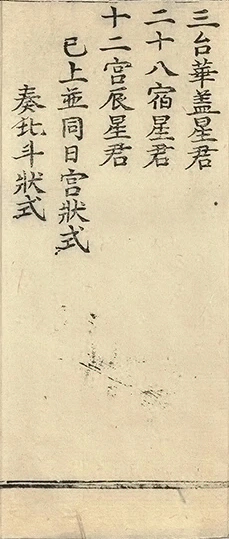 三台華盖星君
二十八宿星君
十二宫辰星君
已上並同日宫狀式
奏北斗狀式